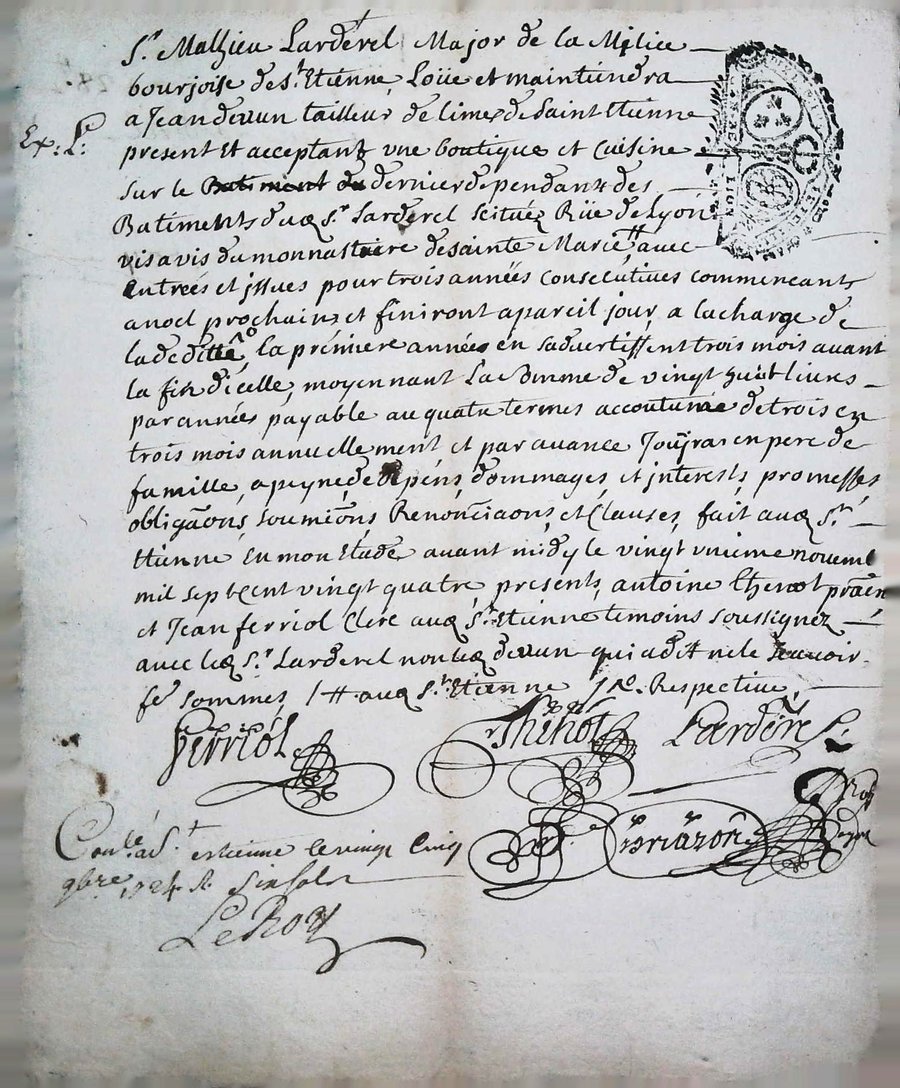 Sr. Mathieu Larderel † Major de la Milice
bourjoise de St. Etienne, Loüe et maintiendra
a Jean devun tailleur de limes de Saint Etienne
Ex. Le.
present et acceptant vne boutique et Cuisine
sur le Batiment du dernier dependant des
Batiments dud. Sr. Larderel scituéz Rüe de Lyon
vis a vis du monnastaire de sainte Marie # avec
Entrées et jssues pour trois années Consecutives commencant
a noel prochain, et finiront a pareil jour, a la charge de
la deditte, la prémiere année en sadvertissent trois mois avant
la fin dicelle, moyennant La somme de vingt huit livres
par années payable au quatre termes accoutumé de trois en
trois mois annuellement et par avance Joüjra en pere de
famille, a peyne deépéns, dommages, et jnterests, promesses
obligãons, soumiõns Renonciaons, et Clauses, fait aud. St.
Etienne En mon Etude avant midy le vingt vnieme novemb
mil sept Cent vingt quatre presents, antoine thenot prãen
et Jean ferriol Clerc aud. St. Etienne temoins soussignez
avec led. Sr. Larderel non led. devun qui a dit ne le scavoir
fe sommés, / # aud. St. Etienne / No. Respective,
Ferriol
Thenot
Larderel
Controllé a St. † estienne le vingt Cinq
9bre 1724. R. Six sols
LeRoy